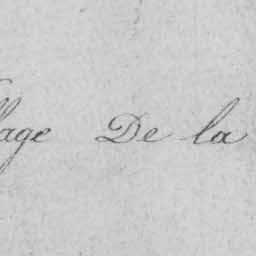 llage De la